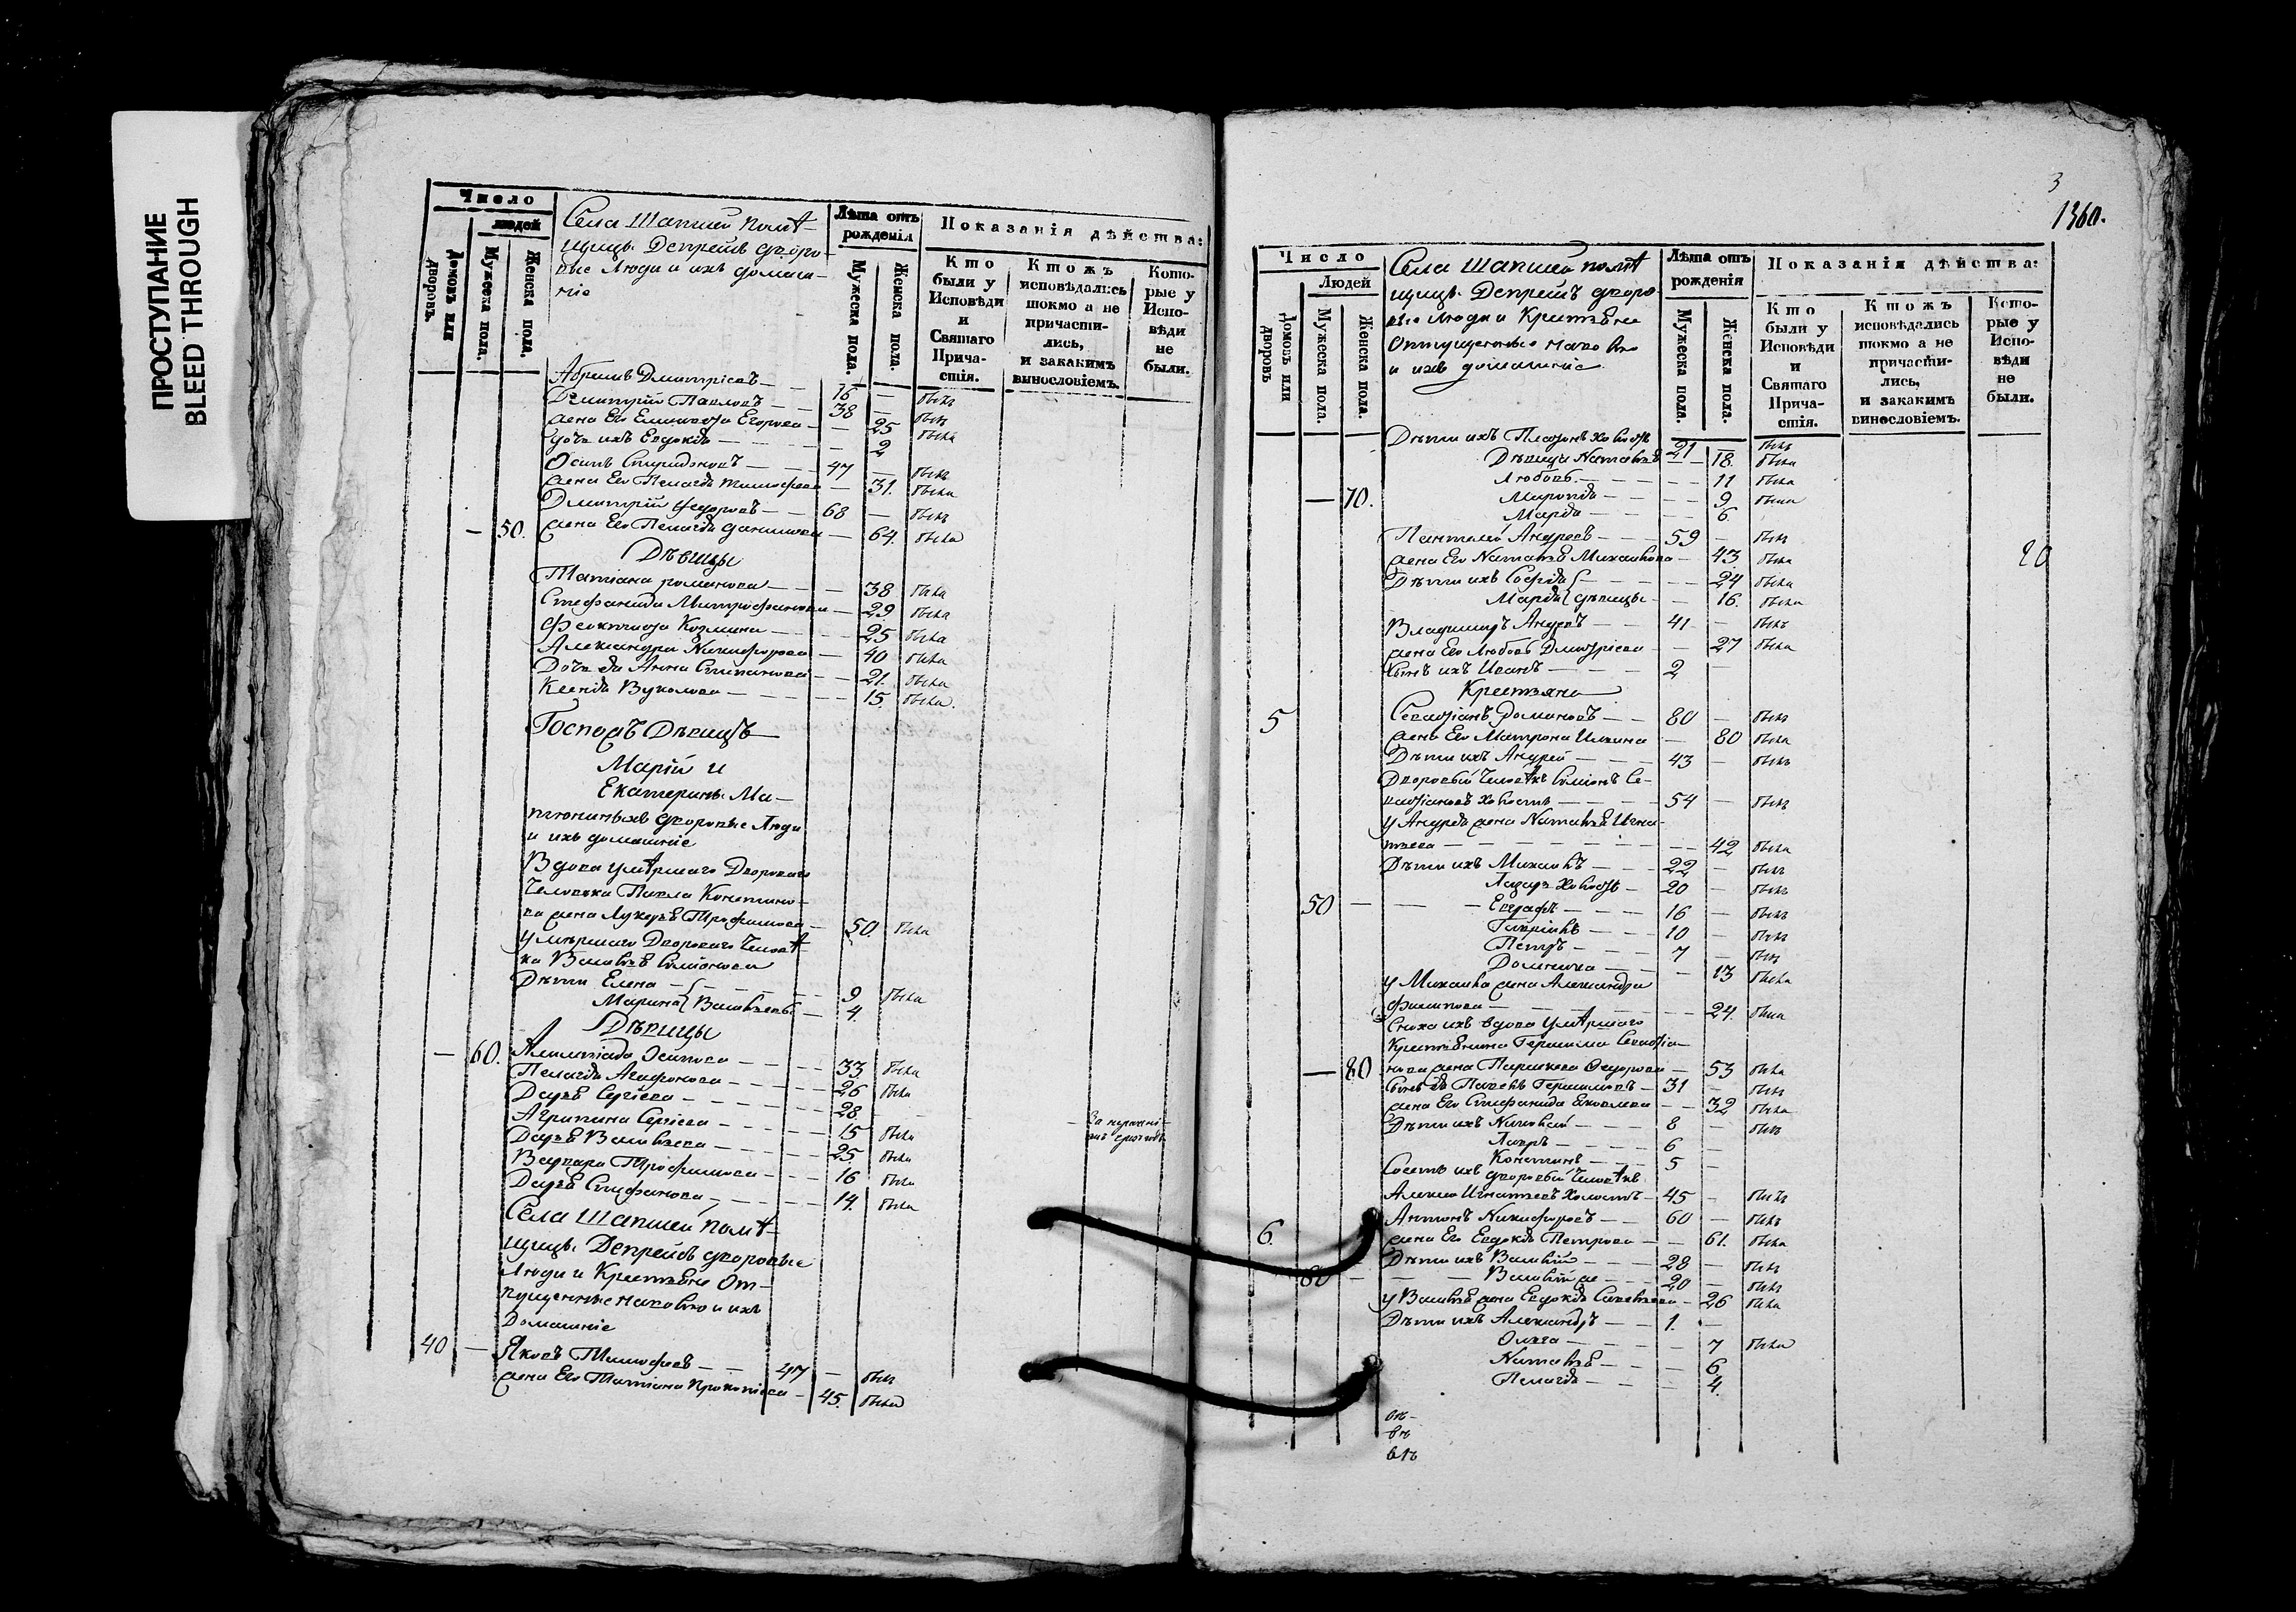 ПРОСТУПАНИЕ
BLEED THROUGH
Число
людей
Домовъ или дворовъ.
Мужеска пола.
Женска пола.
Села Шапшей помѣ-
щицы Депрейсъ дворо-
вые Люди и ихъ домаш-
ніе
Лѣта отъ рожденія
Мужеска пола.
Женска пола.
Показанія дѣйства:
Кто были у Исповѣди и Святаго Причастія.
Ктожъ исповѣдались токмо а не причастились, и закакимъ винословіемъ.
Которые у Исповѣди не были.
Абрамъ Дмитріевъ — 16 — былъ
Дмитрій Павловъ — 38 — былъ
жена Его Егорова — 25 была
дочь ихъ Евдокія — 2
Осипъ Спиридоновъ — 47 — былъ
жена Его Пелагія Тимофеева — 31. была
Дмитрій Федоровъ — 68 — былъ
— 50. жена Его Пелагія Данилова — 64. была
Дѣвицы
Татіана романова — 38 была
Стефанида Митрофанова — 29 была
Феоктиста Козмина — 25 была
Александра Никифорова — 40 была
Дочь ея Анна Степанова — 21. была
Ксенія Вуколова — 15. была.
Госпожъ Дѣвицъ
Маріи и
Екатерины Ма-
тюниныхъ дворовые Люди
и ихъ домашніе
Вдова умѣршаго Двороваго
Человѣка Павла Констино-
ва жена Лукерья Трофимова — 50. была
умершаго Двороваго Человѣ-
ка Василья Симіонова
Дѣти Елена — 9 была
Марина Васильевы — 4.
Дѣвицы
— 60. Алимпіада Осипова — 33. была
Пелагія Агафонова — 26 была
Дарья Сергіева — 28.
Агрипина Сергіева — 15 была
Дарья Васильева — 25 была
Варвара Трофимова — 16 была
Дарья Стефанова — 14. была
Села Шапшей помѣ-
щицы Депрейсъ дворовые
Люди и Крестьяне От-
пущенные наволю и ихъ
Домашніе
40 — Яковъ Тимофеевъ — 47 — былъ
жена Его Татіана Прокопіева — 45. была
3
1360.
Число
Людей
Домовъ или дворовъ
Мужеска пола.
Женска пола.
Села Шапшей помѣ
щицы Депрейсъ дворо-
вые Люди и Крестьяне
Отпущенные наволю
и ихъ домашніе
Лѣта отъ рожденія
Мужеска пола.
Женска пола.
Показанія дѣйства:
Кто были у Исповѣди и Святаго Причастія.
Ктожъ исповѣдались токмо а не причастились, и закакимъ винословіемъ.
Которые у Исповѣди не были.
Дѣти ихъ Платонъ холостъ 21 — былъ
Дѣвицы Наталья — 18. была
Любовь — 11 была
— 70. — 9 была
Марія — 6.
Пантелей Андреевъ — 59 — былъ
жена Его Наталья Михайлова — 43 была
20
Дѣти ихъ Софія — 24 была
Марія дѣвицы — 16. была
Владимиръ Андреевъ — 41 — былъ
жена Его Любовь Дмитріева — 27 была
сынъ ихъ Иванъ — 2 —
Крестьяне
5 Севастіанъ — 80 — былъ
жена Его Матрона Ильина — 80 была
Дѣти ихъ Андрей — 43 — былъ
Дворовый Человѣкъ Симіонъ Се-
вастіановъ холостъ — 54 — былъ
у Андрея жена Наталья Игна-
тьева — 42 была
Дѣти ихъ Михаилъ — 22 — былъ
Лазарь холостъ — 20 — былъ
50 — Евграфъ — 16 — былъ
Гавріилъ — 10 — былъ
Петръ — 7 — былъ
Домника — 13 была
у Михаила жена Александра
Филипова — 24. была
Сноха ихъ вдова умѣршаго
Крестьянина Герасима Севастіа-
— 80 нова жена Параскева Федорова — 53 была
сынъ ея Павелъ Герасимовъ — 31 — былъ
жена Его Стефанида Яковлева — 32 была
Дѣти ихъ Николай — 8 — былъ
Лавръ — 6 —
Констинъ — 5 —
дворовый Человѣкъ
Алексѣй Игнатьевъ Холостъ — 45 — былъ
6. Антонъ Никифоровъ — 60 — былъ
жена Его Евдокія Петрова — 61. была
Дѣти ихъ Василій — 28 — былъ
— Василій же — 20 — былъ
у Василья жена Евдокія Савельева — 26 была
Дѣти ихъ Александръ — 1. —
Ольга — 7 была
Наталья — 6
Пелагія — 4.